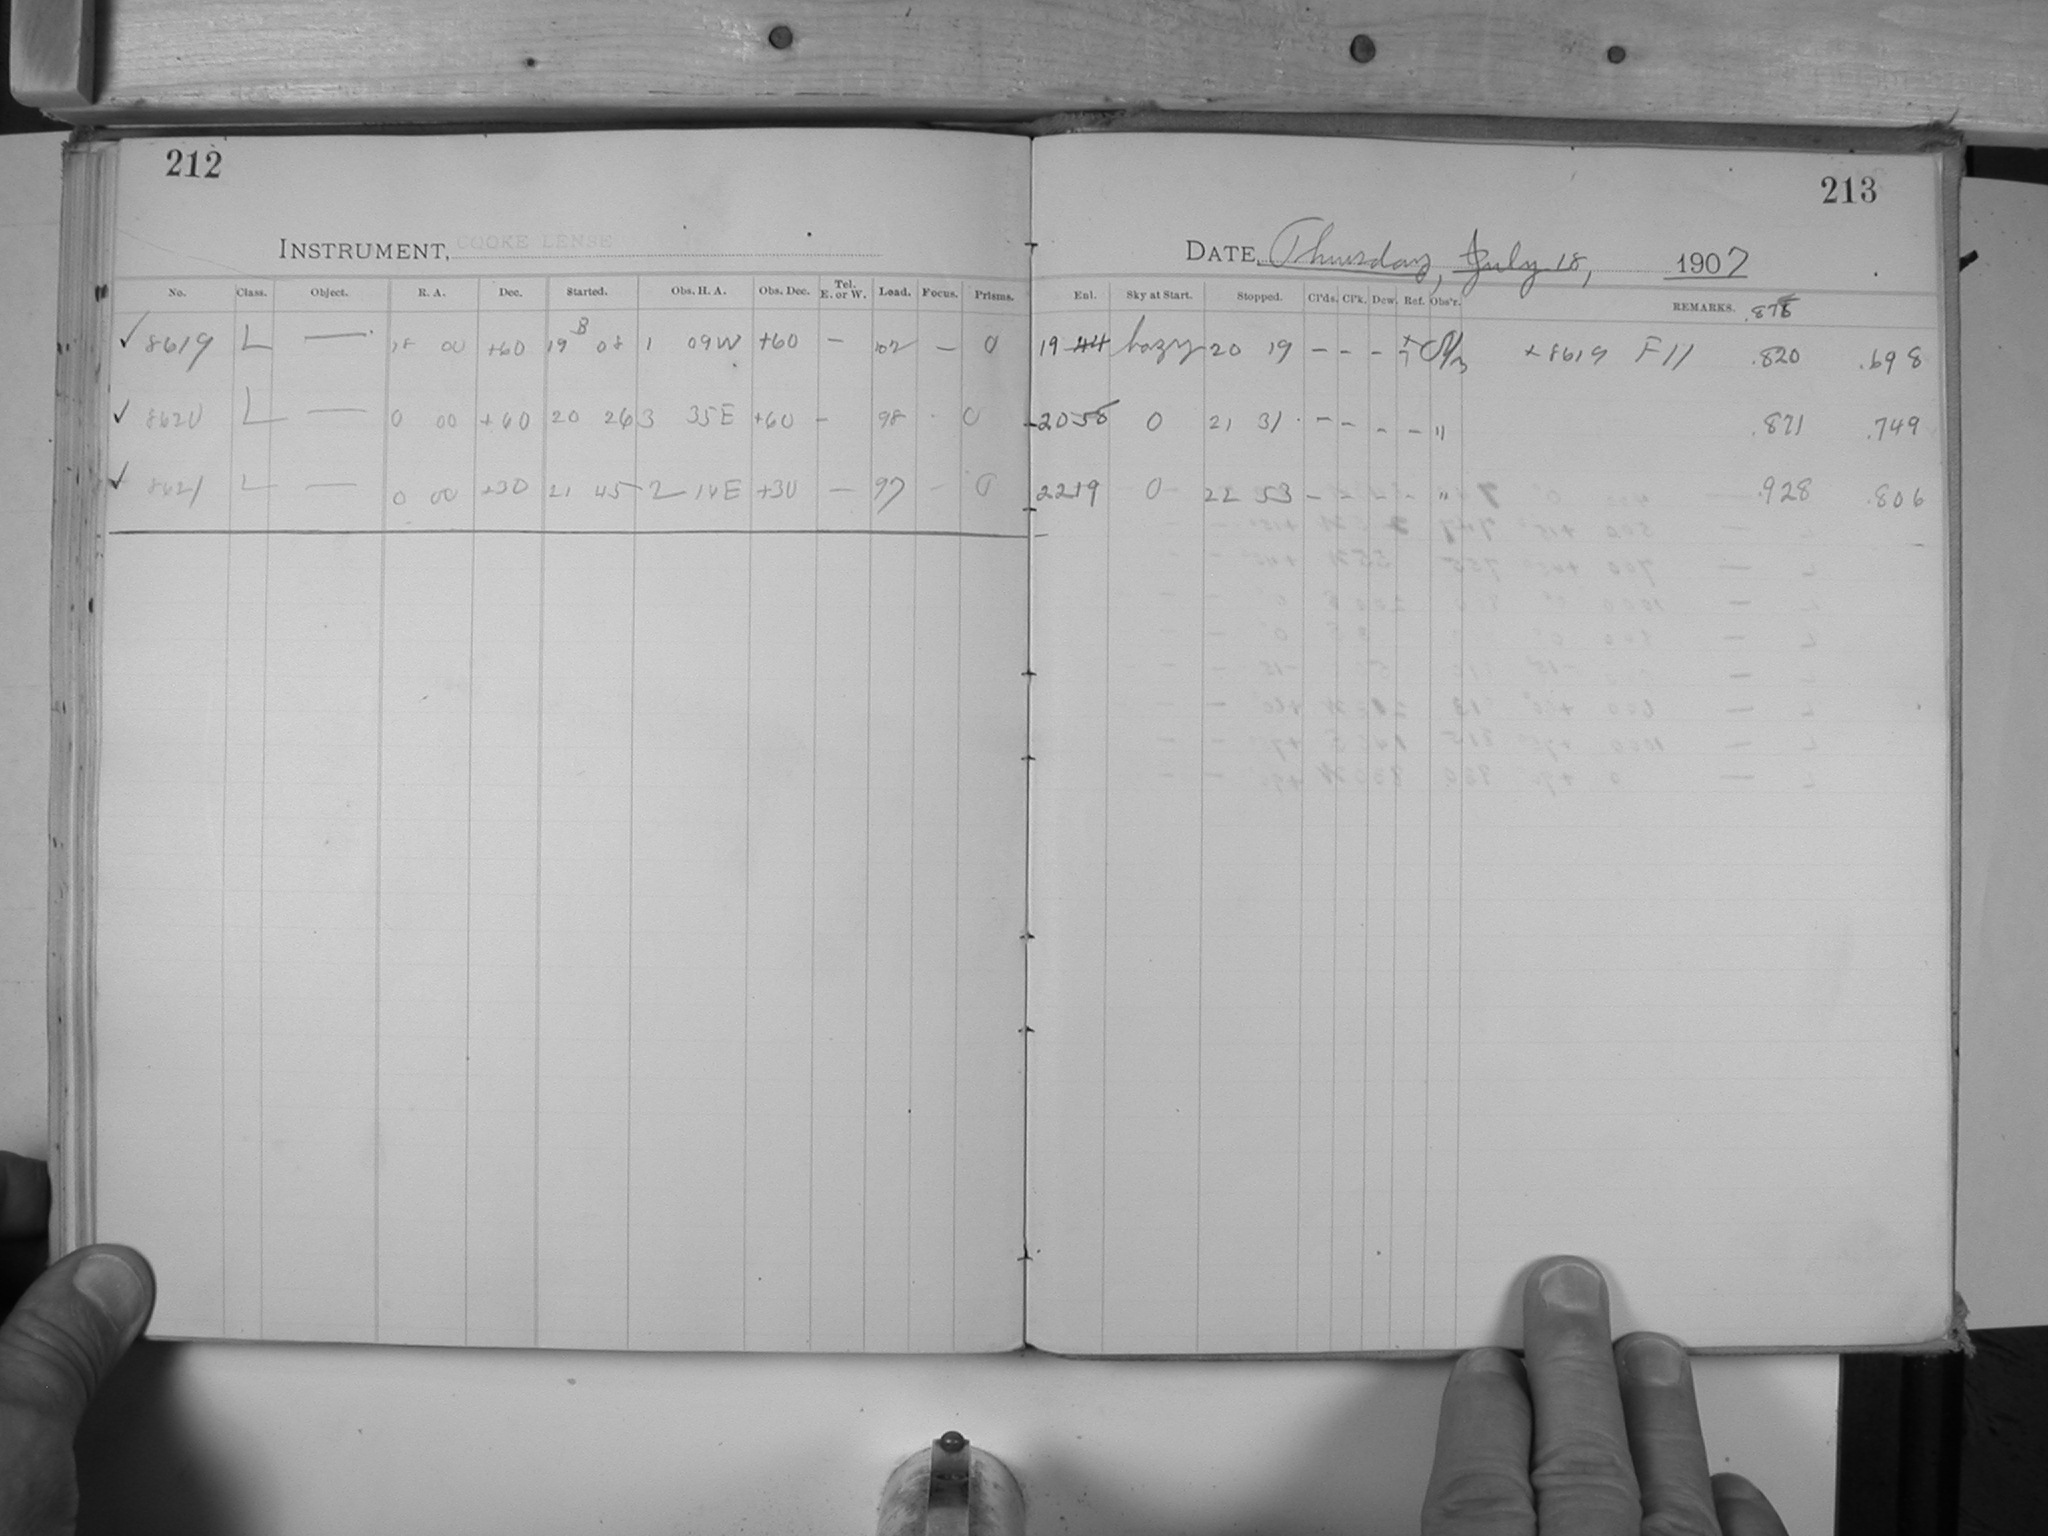 212
213
INSTRUMENT, COOKE LENSE
DATE, Thursday, July 18, 1907
No. Class. Object. R. A. Dec. Started. Obs. H. A. Obs. Dec. Tel. E. or W. Load. Focus. Prisms. Enl. Sky at Start. Stopped. Cl'ds. Cl'k. Dew. Ref. Obs'r. REMARKS.
✓ 8619 L — 18 00 +60 19 08 1 09W +60 — 102 — 0 19 44 hazy 20 19 – – – + 8619 F 11 .820 .698
✓ 8620 L — 0 00 +60 20 26 3 35E +60 – 98 · 0 20 58 0 21 31 – – – – " .871 .749
✓ 8621 L — 0 00 +30 21 45 2 14E +30 — 97 – 0 22 19 0 22 53 – – – - " .928 .806